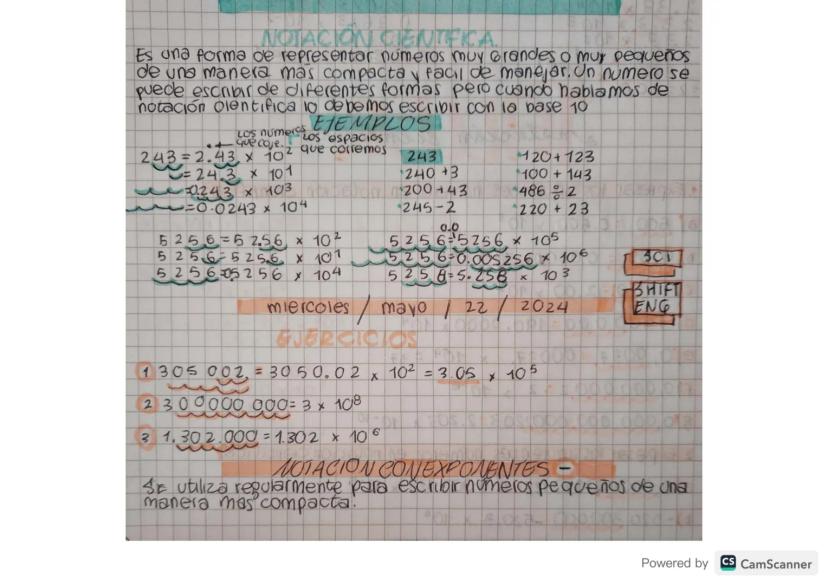 NOTACIÓN CIENTIFICA
Es una forma de representar números muy grandes o muy pequeños
de una manera más compacta y facil de manejar. Un numero se
puede escribir de diferentes formas pero cuando hablamos de
notación cientifica lo debemos escribir con la base 10
EJEMPLOS
Los números que coje.
Los espacios que corremos
243 = 2.43 x 10²
= 24.3 x 10¹
=0.243 x 10³
=0.0243 x 10⁴
243
240 +3
200 +43
245-2
120+123
100+143
486 ÷ 2
220 + 23
5256=52.56 x 10²
5256=525.6 x 10¹
5256=05256 x 10⁴
0.0
5256=5256 x 10⁵
5256=0.005256 x 10⁶
5256=5.256 x 10³
SCI
SHIFT
ENG
miercoles / mayo / 22 / 2024
EJERCICIOS
1 305 002, = 3050.02 x 10² = 3.05 x 10⁵
2 300000 000= 3 x 10⁸
3 1.302.000=1.302 x 10⁶
NOTACION CON EXPONENTES -
Se utiliza regularmente para escribir números pequeños de una
manera mas compacta.
Powered by CS CamScanner